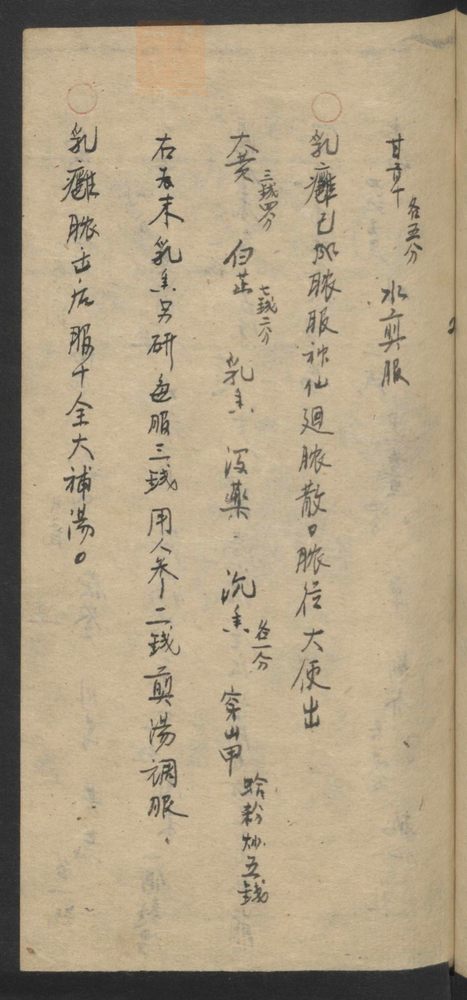 甘草各五分 水煎服
乳癰已成膿服神仙廻膿散。膿從大便出
大黃三錢四分 白芷七錢二分 乳香 沒藥 沉香各一分 穿山甲蛤粉炒五錢
右為末乳香另研每服三錢用人參二錢煎湯調服
乳癰膿出后服十全大補湯。